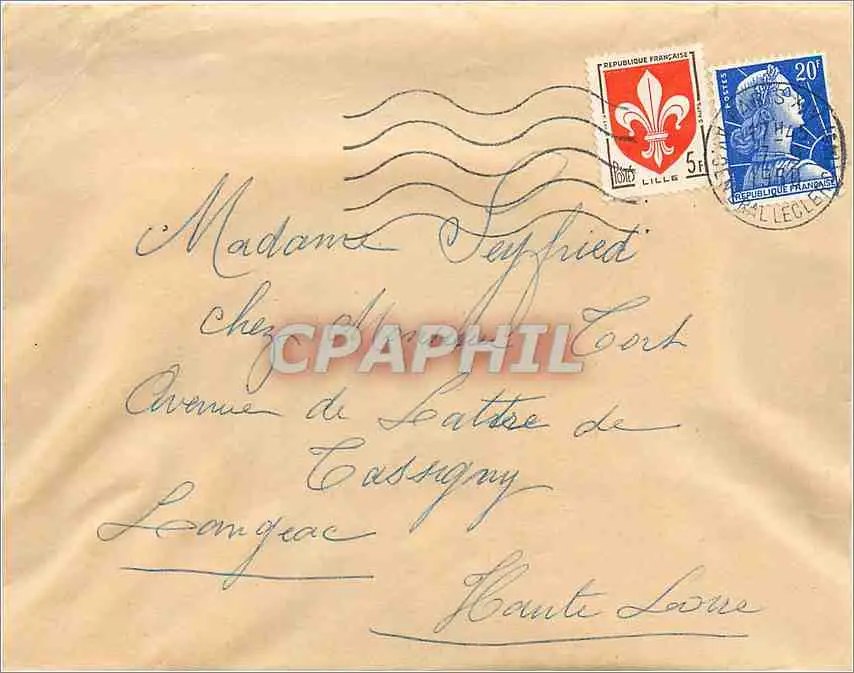 REPUBLIQUE FRANÇAISE
POSTES
5F
LILLE
POSTES
20F
REPUBLIQUE FRANÇAISE
PARIS
Madame Seyfried
chez Monsieur Tort
CPAPHIL
Avenue de Lattre de
Tassigny
Langeac
Haute Loire